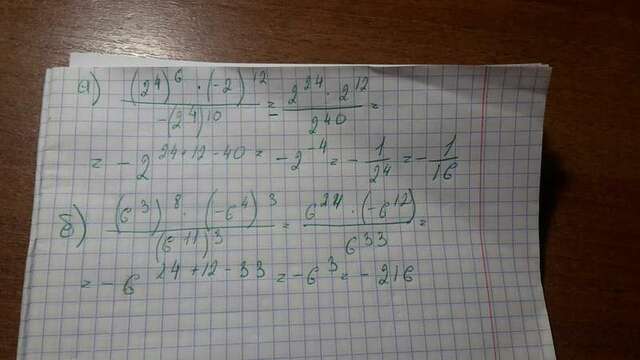 а) (2^4)^6 · (-2)^12 / -(2^4)^10 = - 2^24 · 2^12 / 2^40 =
= - 2^24+12-40 = -2^-4 = - 1/2^4 = - 1/16
б) (6^3)^8 · (-6^4)^3 / (6^11)^3 = 6^24 · (-6^12) / 6^33 =
= - 6^24+12-33 = -6^3 = - 216